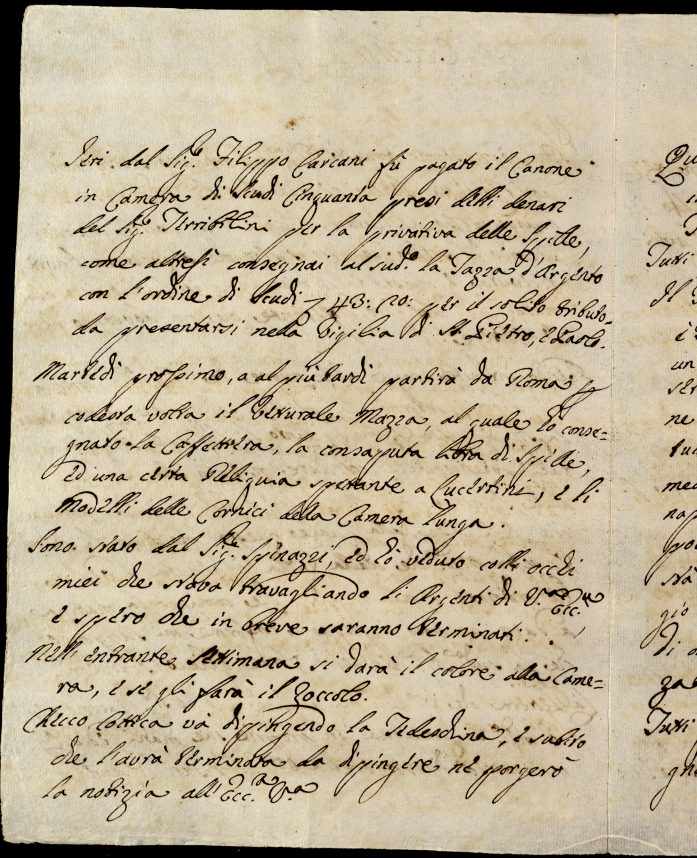 Jeri dal Sig.e Filippo Carcani fù pagato il Canone
in Camera di Scudi Cinquanta presi delli denari
del Sig.e Terribilini per la privativa delle Spille,
come altresì consegnai al sud.o la Tazza d'Argento
con l'ordine di Scudi 43: 20: per il solito tributo
da presentarsi nella Vigilia di S. Pietro, e Paolo.
Martedì prossimo, o al più tardi partirà da Roma p
codesta volta il Vetturale Mazza, al quale ò conse=
gnato la Caffettiera, la consaputa libra di Spille,
ed una certa Reliquia spettante a Lucertini, e li
modelli delle Cornici della Camera lunga.
Sono stato dal Sig.e Spinazzi, ed ò veduto colli occhi
miei che stava travagliando li Argenti di V.a Ecc.za,
e spero che in breve saranno terminati.
Nell'entrante settimana si darà il colore alla Came=
ra, e se gli farà il Zoccolo.
Checco Cottica và dipingendo la Tedeschina, e subito
che l'avrà terminata da dipingere ne porgerò
la notizia all'Ecc.za V.a
Tutti
Il
un
ne
nap
stà
gio
di
Tutti